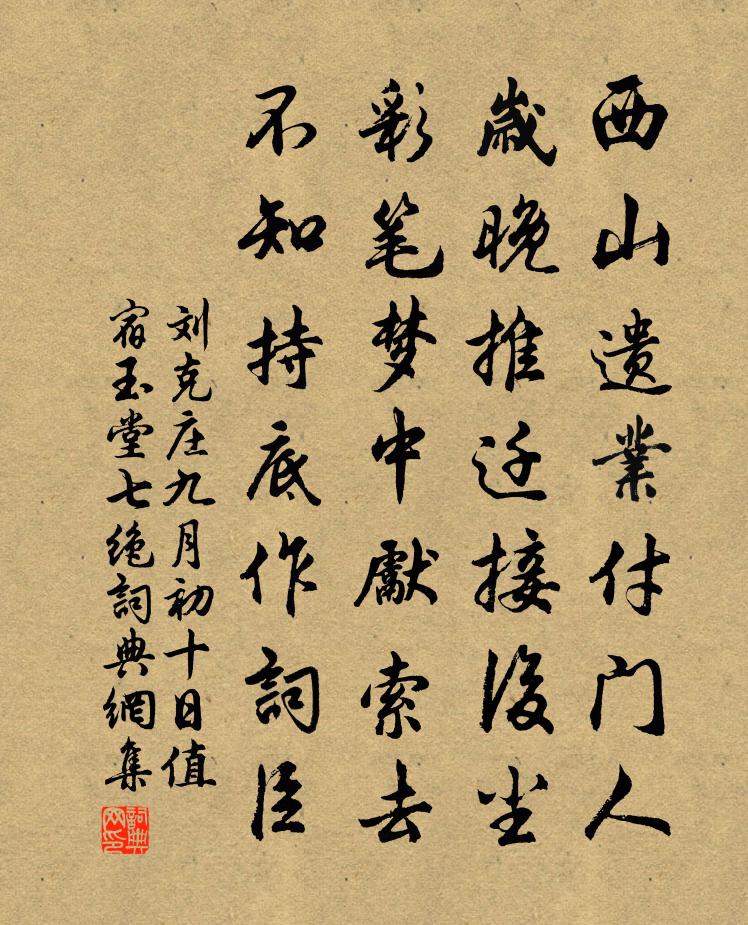 西山遗業付门人
歲晚推迁接後尘
彩笔梦中獻索去
不知持底作詞臣
刘克庄九月初十日值
宿玉堂七绝詞典網集
詞典网印